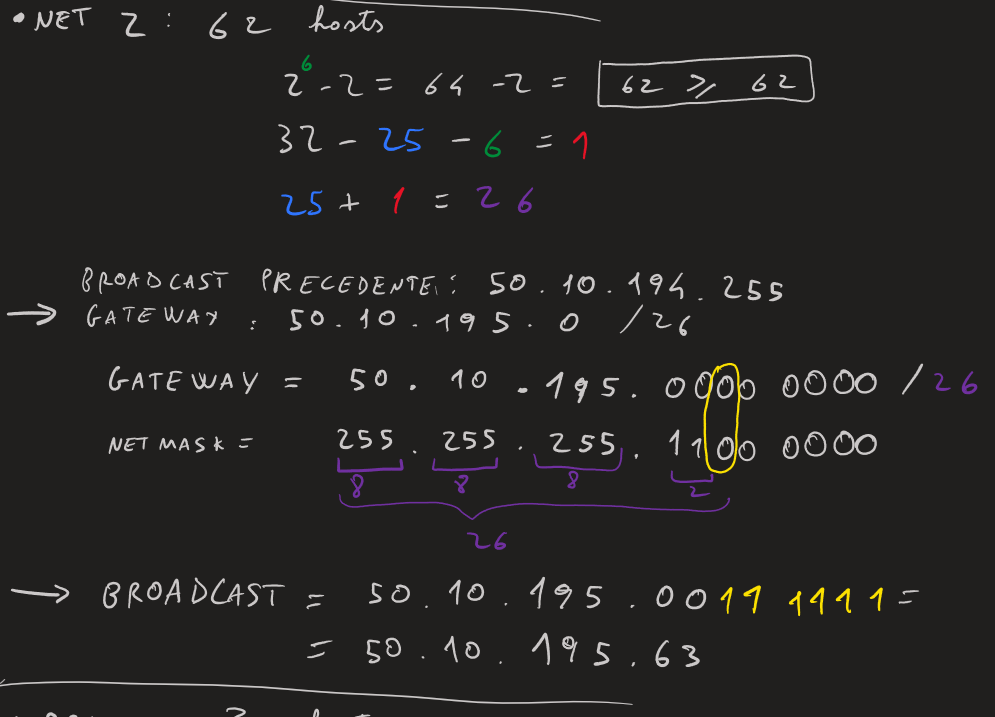 • NET 2 : 62 hosts
2⁶ - 2 = 64 - 2 = 62 ⩾ 62
32 - 25 - 6 = 1
25 + 1 = 26
BROADCAST PRECEDENTE : 50 . 10 . 194 . 255
→ GATEWAY : 50 . 10 . 195 . 0 /26
GATEWAY = 50 . 10 . 195 . 0000 0000 /26
NETMASK = 255 . 255 . 255 . 1100 0000
8 8 8 2
26
→ BROADCAST = 50 . 10 . 195 . 0011 1111 =
= 50 . 10 . 195 . 63